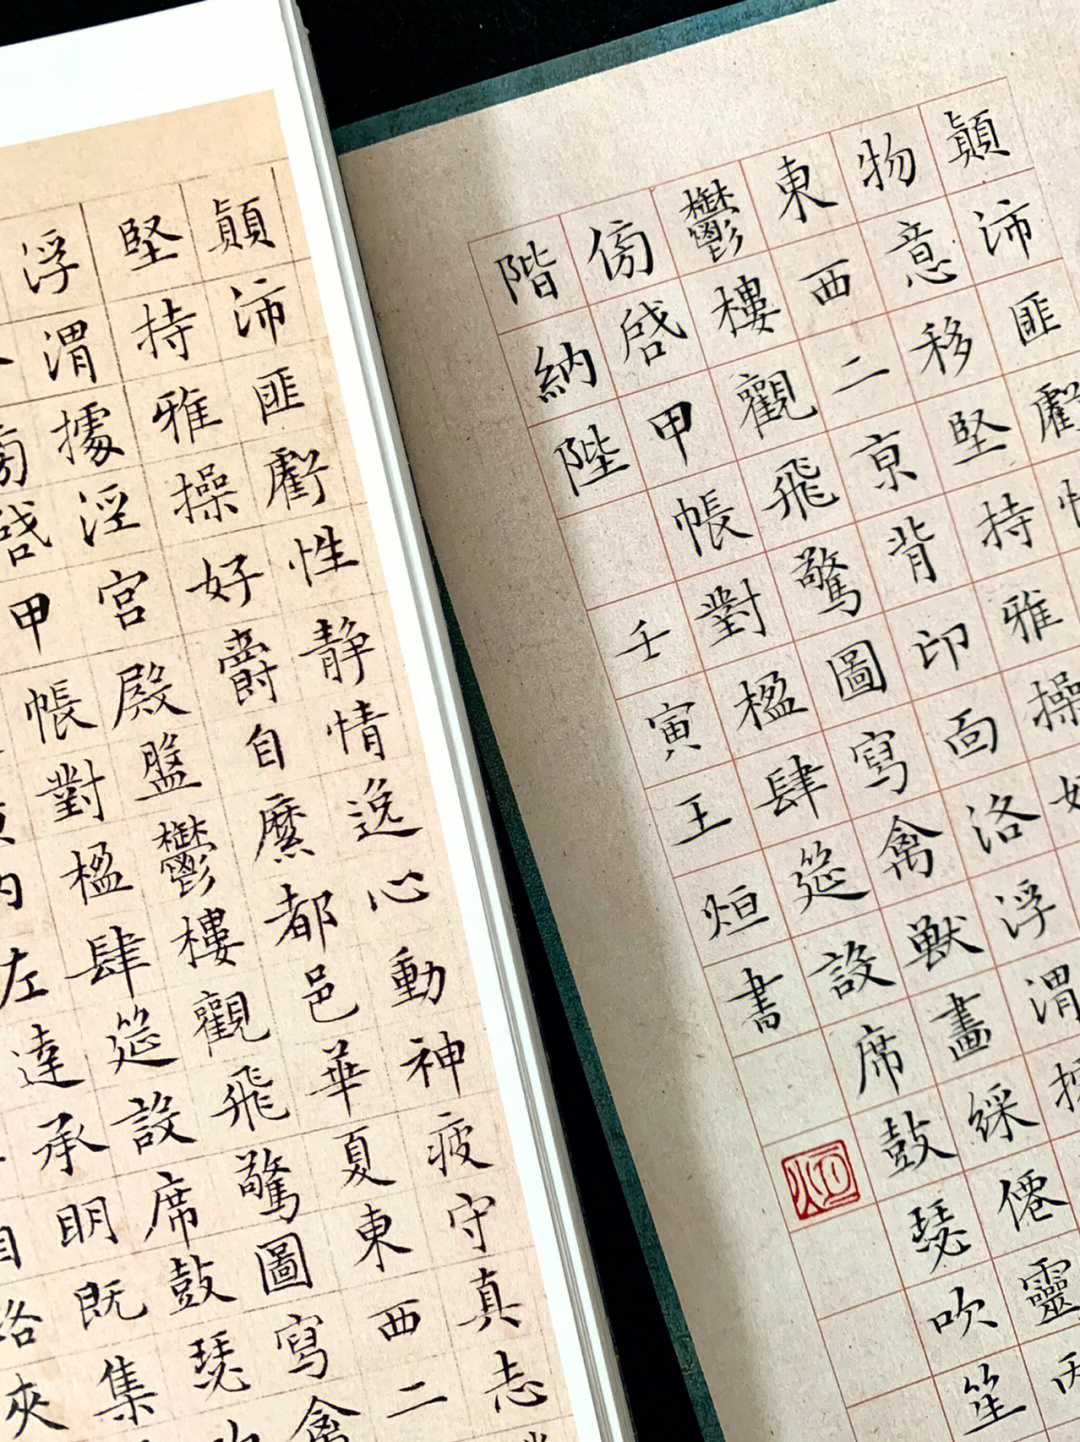 顛沛匪虧性
物意移堅持雅操好
東西二京背邙面洛浮渭據
鬱樓觀飛驚圖寫禽獸畫綵僊靈丙
傍啓甲帳對楹肆筵設席鼓瑟吹笙
階納陛 壬寅王烜書
烜
顛沛匪虧性靜情逸心動神疲守真志
堅持雅操好爵自縻都邑華夏東西二
浮渭據涇宮殿盤鬱樓觀飛驚圖寫禽
傍啓甲帳對楹肆筵設席鼓瑟吹
內左達承明既集
路夾